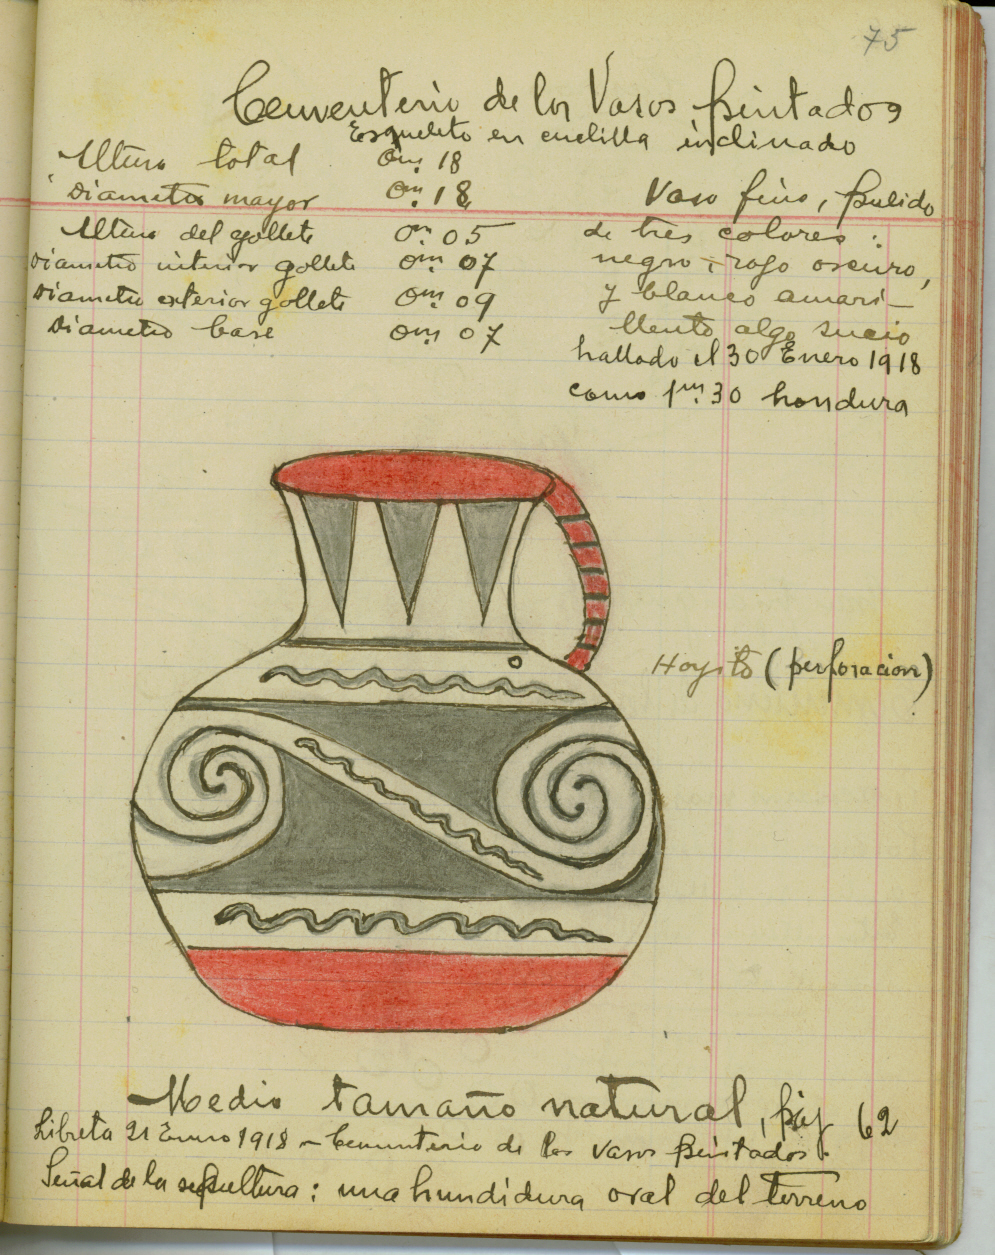 75
Cementerio de los Vasos pintados
Esqueleto en cuclilla inclinado
Altura total 0m. 18
Diametro mayor 0m. 18
Altura del gollete 0m. 05
Diametro interior gollete 0m. 07
Diametro exterior gollete 0m. 09
Diametro base 0m. 07
Vaso fino, pulido
de tres colores:
negro, rojo oscuro,
y blanco amari-
llento algo sucio
hallado el 30 Enero 1918
como 1m. 30 hondura
Hoyito (perforacion)
Medio tamaño natural, pág 62
Libreta 21 Enero 1918 - Cementerio de los Vasos Pintados.
Señal de la sepultura: una hundidura oval del terreno